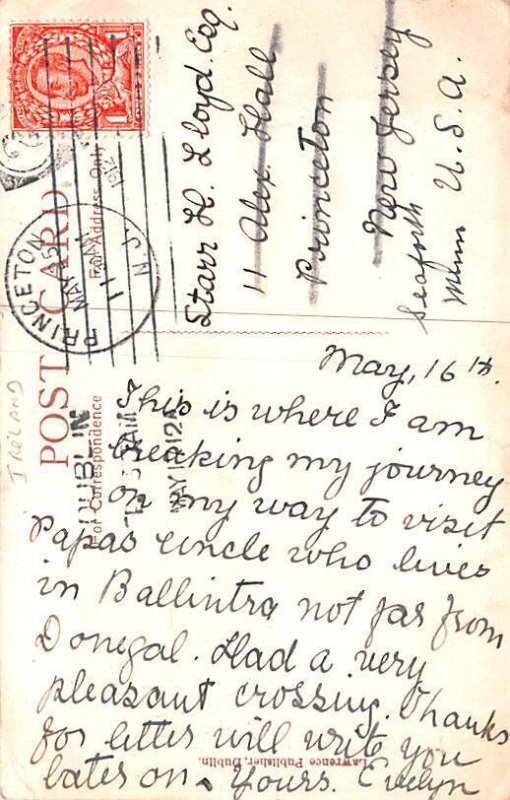 POST CARD
For Address Only
For Correspondence
IRELAND
PRINCETON
MAY 25
11 AM
1912
N.J.
DUBLIN
MAY 16 12
Starr H. Lloyd Esq.
11 Alex. Hall
Princeton
New Jersey
Seaforth
Minn U.S.A.
May, 16th.
This is where I am
breaking my journey
on my way to visit
Papas uncle who lives
in Ballintra not far from
Donegal. Had a very
pleasant crossing. Thanks
for letter will write you
later on. Yours. Evelyn
Lawrence Publisher, Dublin.